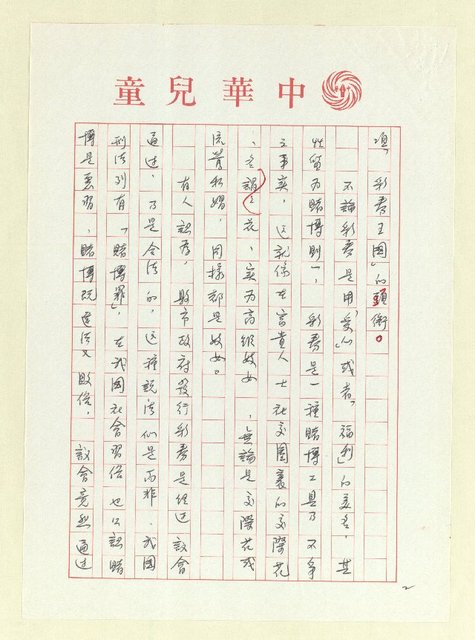 中華兒童
項「彩券王國」的頭銜。
不論彩券是用「愛心」或者「福利」的美名,其
性質為賭博則一,彩券是一種賭博工具乃不爭
之事實,這就像在富貴人士社交圈裏的交際花
,名謂之花,實為高級妓女,無論是交際花或
流鶯私娼,同樣都是妓女。
有人認為,縣市政府發行彩券是經過議會
通過,乃是合法的,這種說法似是而非,我國
刑法列有「賭博罪」,在我國社會習俗也公認賭
博是惡習,賭博既違法又敗俗,議會竟然通過
2